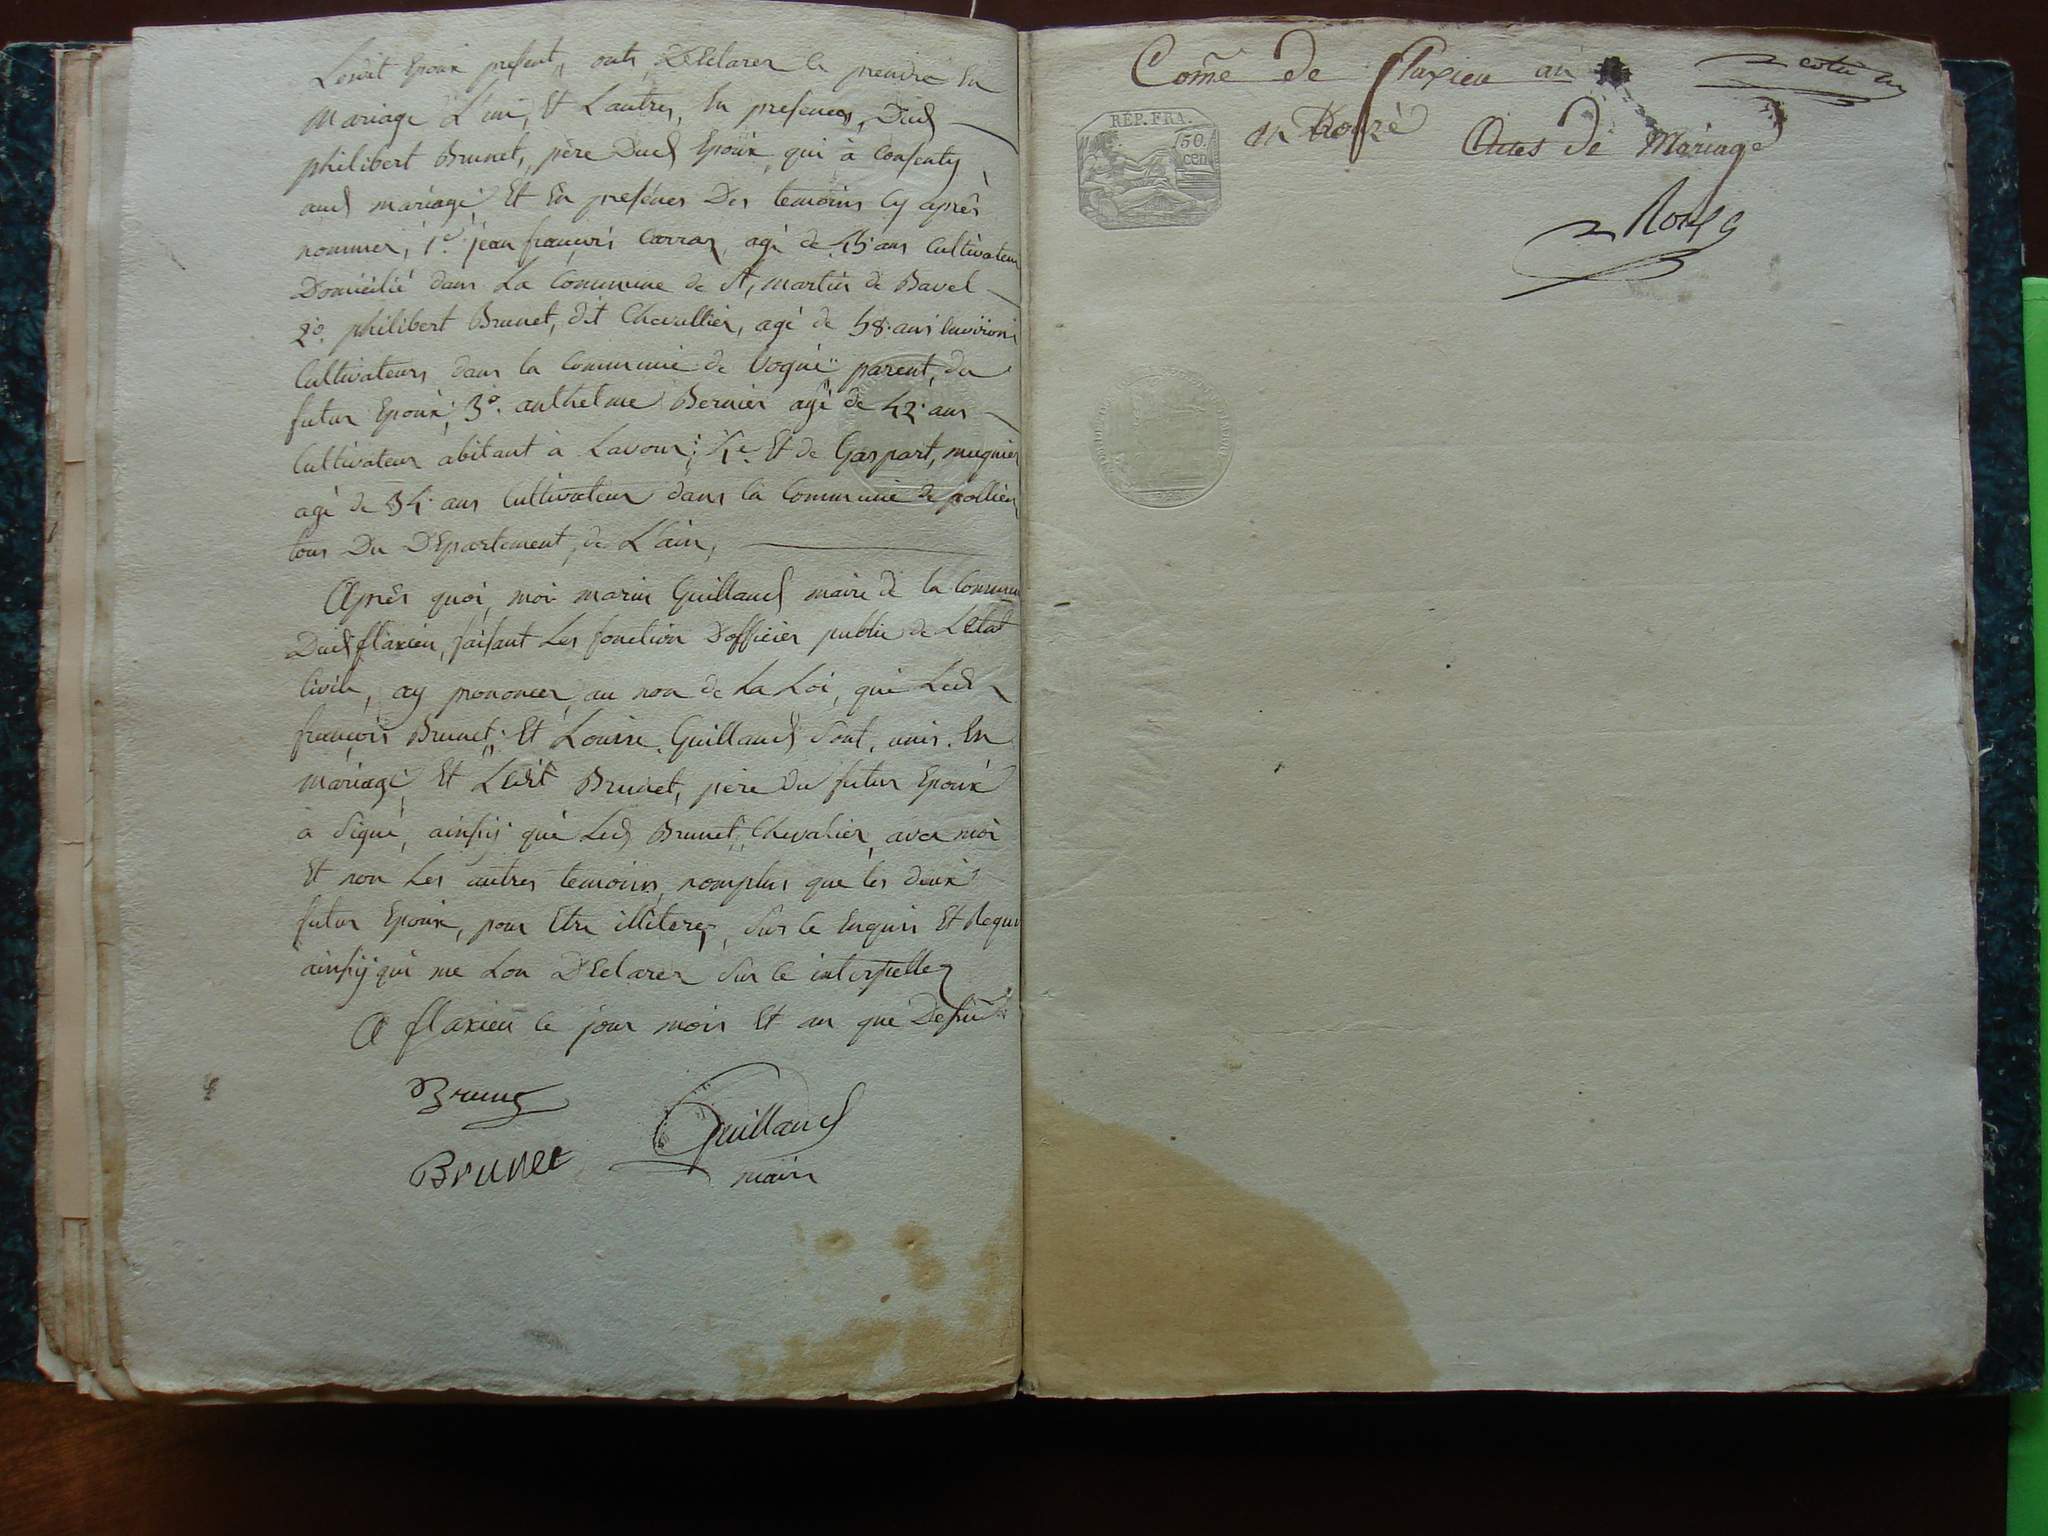 Lesdit Epoux present, onts DEclarer ce prendre En
Mariage L'un, Et Lautres, En presences, Dud
philibert Brunet, père Dud Epoux, qui à consenty
aud mariage, Et En présences Des temoins Cy après
nommer, 1º jean françois Carraz, agé de 45 ans Cultivateur
Domicilié dans La Commune de St, martin de Bavel
2º. philibert Brunet, dit Chevallier, agé de 48 ans Environs
Cultivateurs dans la Commune de Vogni parent, du
futur Epoux, 3º. anthelme Bernier agé de 42 ans
Cultivateur abitant à Lavour; 4e. Et de Gaspart, mugnier
agé de 34 ans Cultivateur dans la Commune de pollieu
tous Du DEpartement, de L'ain,
Après quoi, moi marin Guilland maire de la Commune
Dud flaxieu, faisant Les fonction Dofficier public de Letat
Civile, ay prononcer au non de La Loi, que Led
françois Brunet; Et Louise Guilland Sont, unis, En
mariage, Et Ledit Brunet, père du futur Epoux
à Signé, ainsÿ que Led Brunet, Chevalier, avec moi
Et non Les autres temoins, nomplus que les deux
futur Epoux, pour Etre illiteres, Sur ce Enquis Et Requis
ainsÿ qui me Lon DEclarer Sur ce interpeller
A flaxieu ce jour mois Et an que Desus
Brunet
Guilland
Brunet
maire
Come de flaxieu an
REP. FRA.
50.
cen.
an Douzé
Actes de Mariage